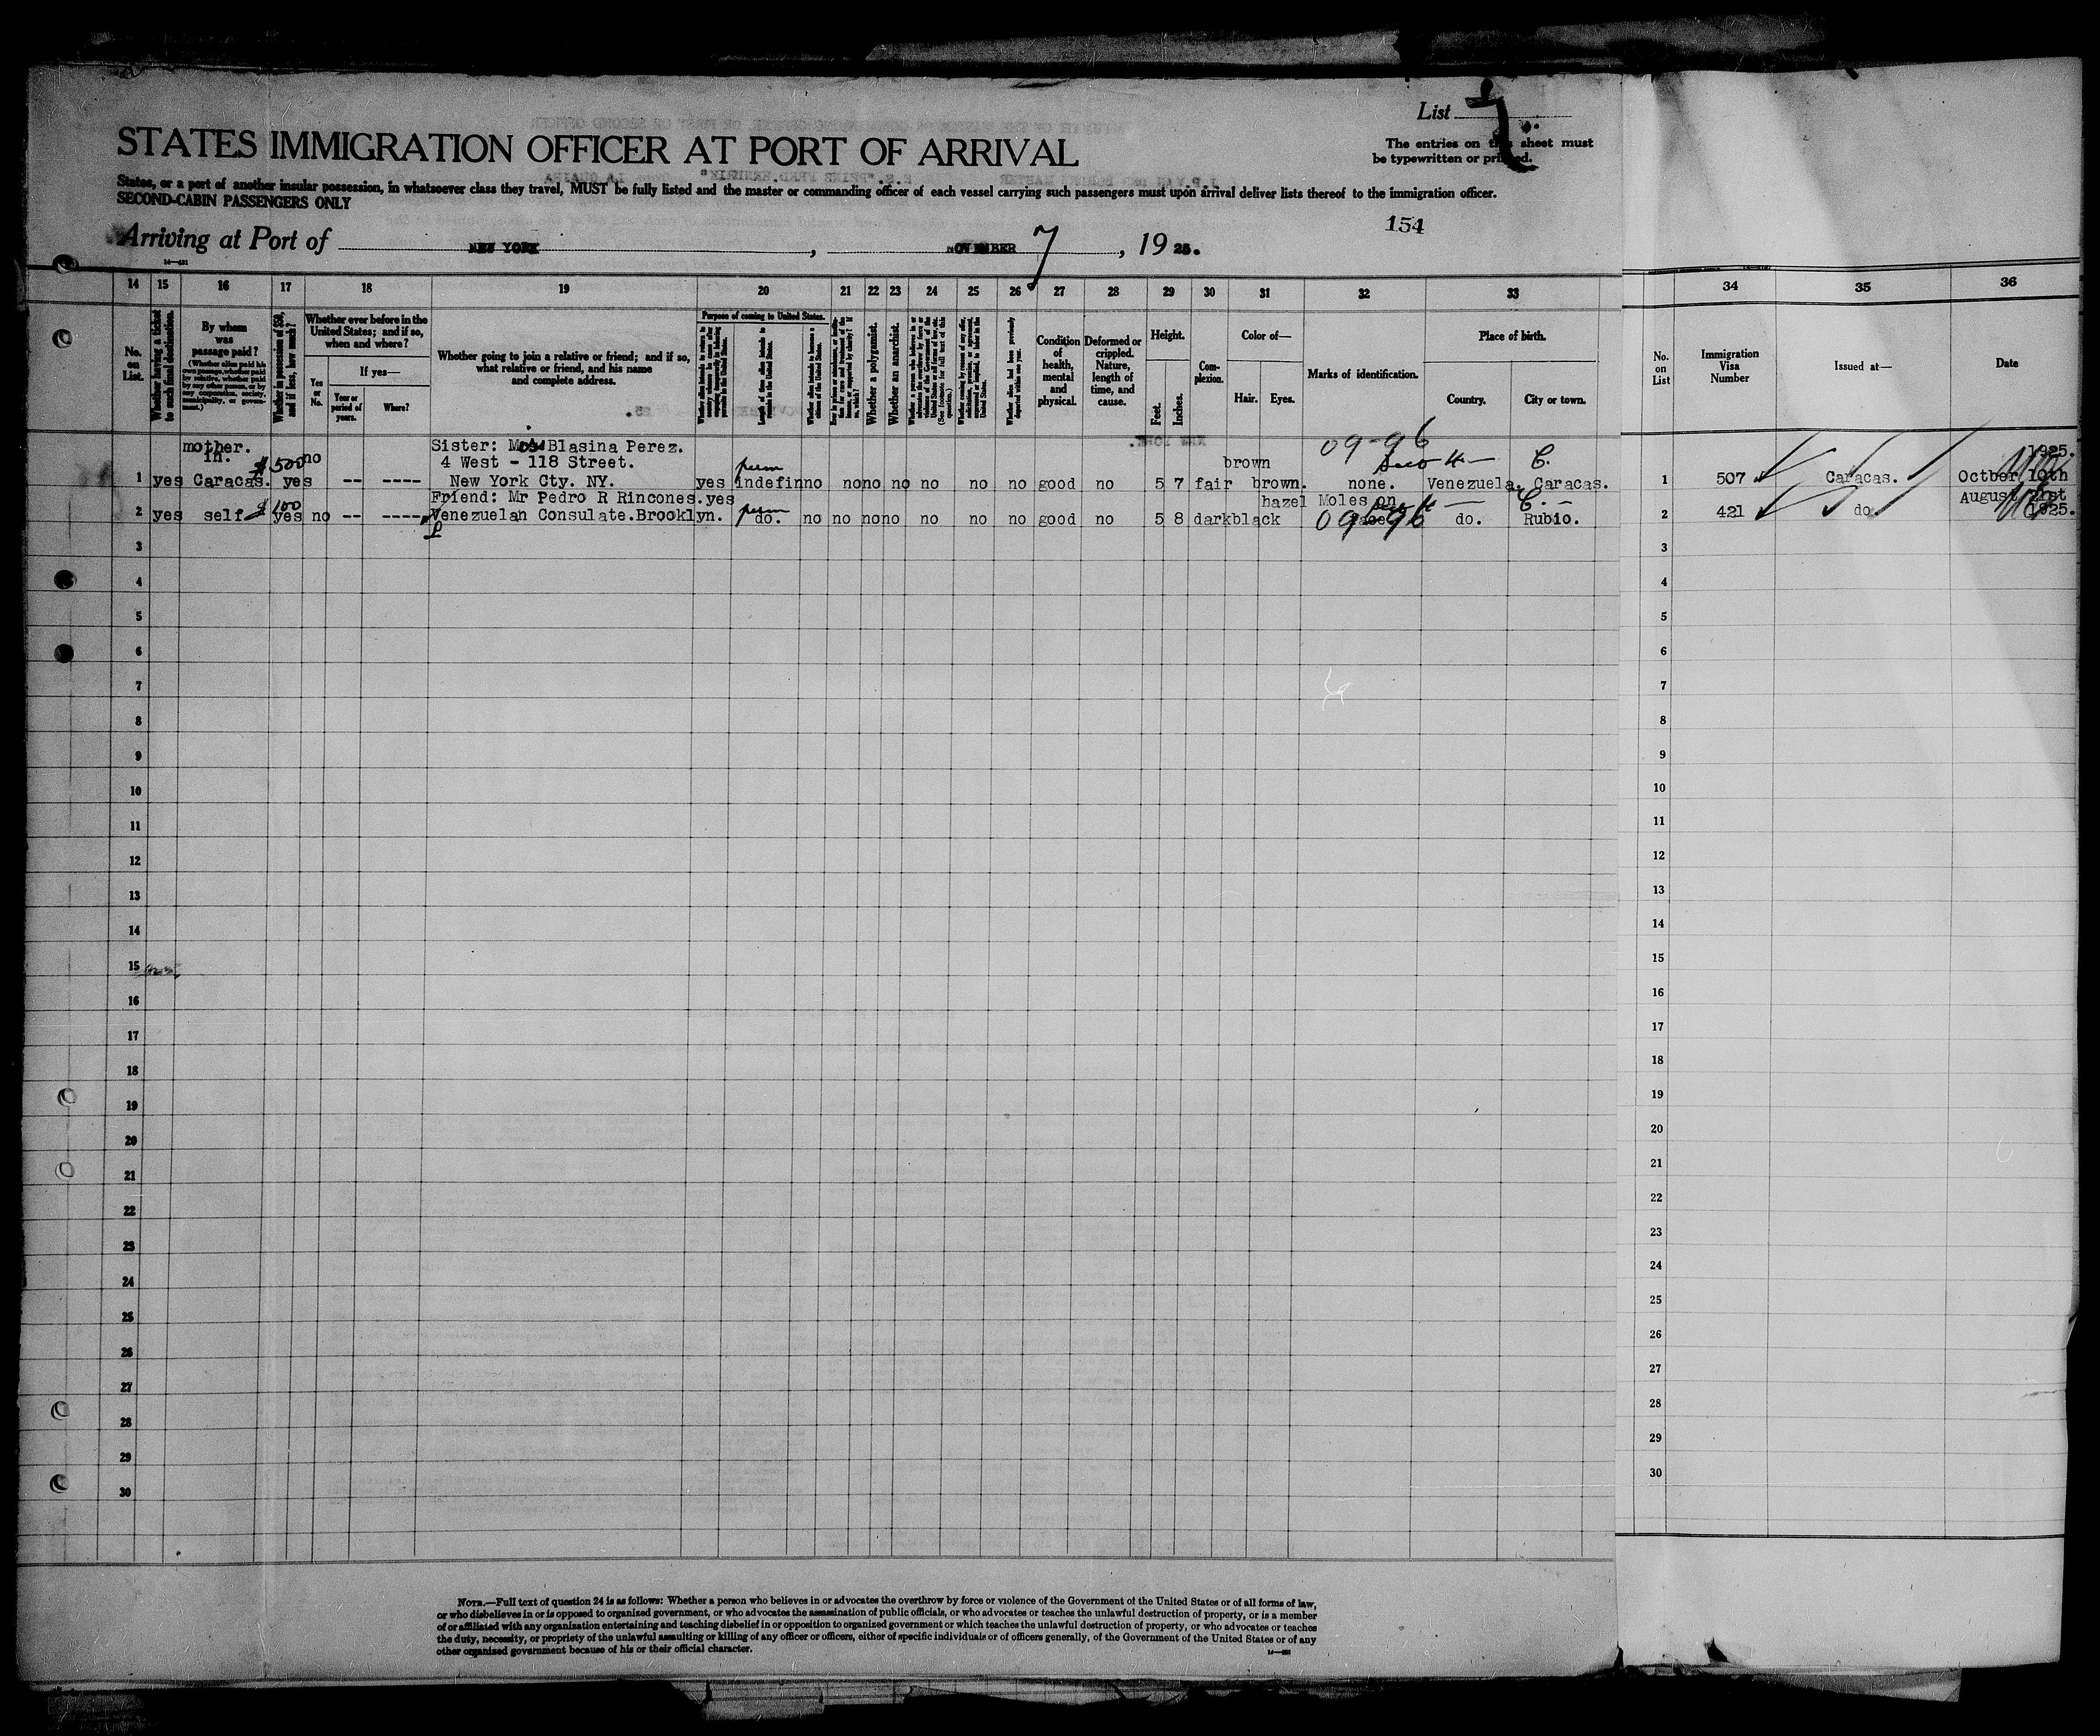 List
STATES IMMIGRATION OFFICER AT PORT OF ARRIVAL
The entries on this sheet must
be typewritten or printed.
States, or a port of another insular possession, in whatsoever class they travel, MUST be fully listed and the master or commanding officer of each vessel carrying such passengers must upon arrival deliver lists thereof to the immigration officer.
SECOND-CABIN PASSENGERS ONLY
154
Arriving at Port of NEW YORK, NOVEMBER 7, 1925.
14 15 16 17 18 19 20 21 22 23 24 25 26 27 28 29 30 31 32 33 34 35 36
No. on List.
Whether having a ticket to such final destination.
By whom was passage paid?
(Whether alien paid his own passage, whether paid by relative, whether paid by any other person, or by any corporation, society, municipality, or government.)
Whether in possession of $50, and if less, how much?
Whether ever before in the United States; and if so, when and where?
Yes or No.
If yes—
Year or period of years.
Where?
Whether going to join a relative or friend; and if so, what relative or friend, and his name and complete address.
Purpose of coming to United States.
Whether a polygamist.
Whether an anarchist.
Condition of health, mental and physical.
Deformed or crippled. Nature, length of time, and cause.
Height.
Feet.
Inches.
Complexion.
Color of—
Hair.
Eyes.
Marks of identification.
Place of birth.
Country.
City or town.
No. on List
Immigration Visa Number
Issued at—
Date
mother. Sister: Blasina Perez. 09-96 1925.
in. $500 no 4 West - 118 Street. perm brown C.
1 yes Caracas. yes -- ---- New York Cty. NY. yes indefin no no no no no no no good no 5 7 fair brown. none. Venezuela. Caracas. 1 507 Caracas. Octber 10th
$100 Friend: Mr Pedro R Rincones. yes perm hazel Moles on C. August 21st
2 yes self yes no -- ---- Venezuelan Consulate. Brooklyn. do. no no no no no no no good no 5 8 dark black face 09 96 do. Rubio. 2 421 do 1925.
3 3
4 4
5 5
6 6
7 7
8 8
9 9
10 10
11 11
12 12
13 13
14 14
15 15
16 16
17 17
18 18
19 19
20 20
21 21
22 22
23 23
24 24
25 25
26 26
27 27
28 28
29 29
30 30
NOTE.—Full text of question 24 is as follows: Whether a person who believes in or advocates the overthrow by force or violence of the Government of the United States or of all forms of law,
or who disbelieves in or is opposed to organized government, or who advocates the assassination of public officials, or who advocates or teaches the unlawful destruction of property, or is a member
of or affiliated with any organization entertaining and teaching disbelief in or opposition to organized government or which teaches the unlawful destruction of property, or who advocates or teaches
the duty, necessity, or propriety of the unlawful assaulting or killing of any officer or officers, either of specific individuals or of officers generally, of the Government of the United States or of any
other organized government because of his or their official character.